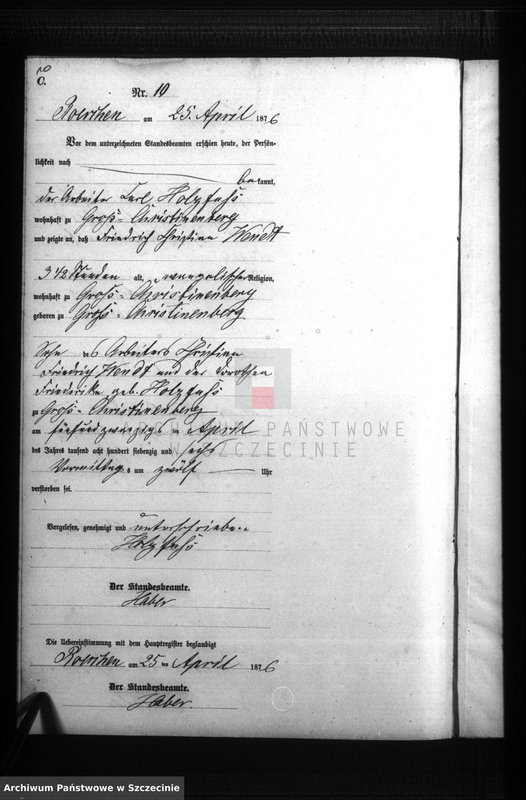 C.
Nr. 10
Roerchen am 25. April 1876
Vor dem unterzeichneten Standesbeamten erschien heute, der Persön-
lichkeit nach
bekannt,
der Arbeiter Carl Holzfuß
wohnhaft zu Groß-Christinenberg
und zeigte an, daß Friedrich Christian Wendt
3 1/2 Stunden alt, evangelischer Religion,
wohnhaft zu Groß-Christinenberg
geboren zu Groß-Christinenberg
Sohn des Arbeiters Christian
Friedrich Wendt und der Dorothea
Friederike geb. Holzfuß
zu Groß-Christinenberg
am fünfundzwanzigsten April
des Jahres tausend acht hundert siebenzig und sechs
Vormittags um zwölf Uhr
verstorben sei.
Vorgelesen, genehmigt und unterschrieben
Holzfuß
Der Standesbeamte.
Haber
Die Uebereinstimmung mit dem Hauptregister beglaubigt
Roerchen am 25 ten April 1876
Der Standesbeamte.
Haber.
ARCHIWUM PAŃSTWOWE
W SZCZECINIE
Archiwum Państwowe w Szczecinie